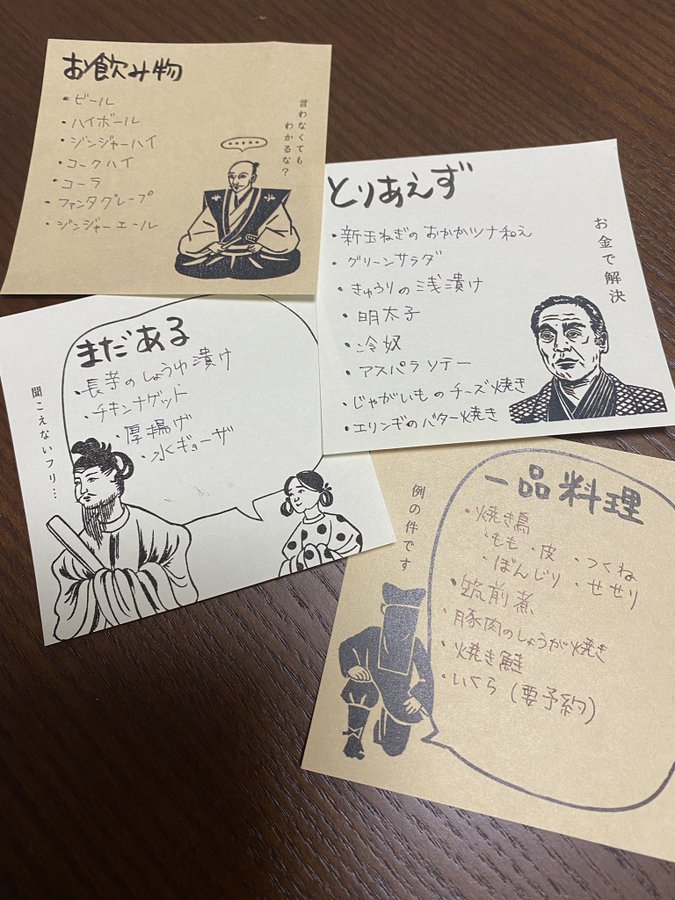 お飲み物
・ビール
・ハイボール
・ジンジャーハイ
・コークハイ
・コーラ
・ファンタグレープ
・ジンジャーエール
言わなくても
わかるな?
・・・・・
とりあえず
・新玉ねぎのおかかツナ和え
・グリーンサラダ
・きゅうりの浅漬け
・明太子
・冷奴
・アスパラソテー
・じゃがいものチーズ焼き
・エリンギのバター焼き
お金で解決
まだある
・長芋のしょうゆ漬け
・チキンナゲット
・厚揚げ
・水ギョーザ
聞こえないフリ…
一品料理
・焼き鳥
・もも ・皮 ・つくね
・ぼんじり ・せせり
・筑前煮
・豚肉のしょうが焼き
・焼き鮭
・いくら(要予約)
例の件です